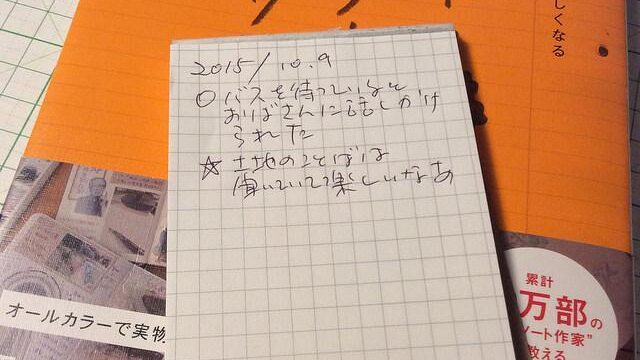 しくなる
2015/10.9
○バスを待っていると
おばさんに話しかけ
られた
☆土地のことばは
聞いていて楽しいなあ
オールカラーで実物
累計
万部の
ート作家”
教える